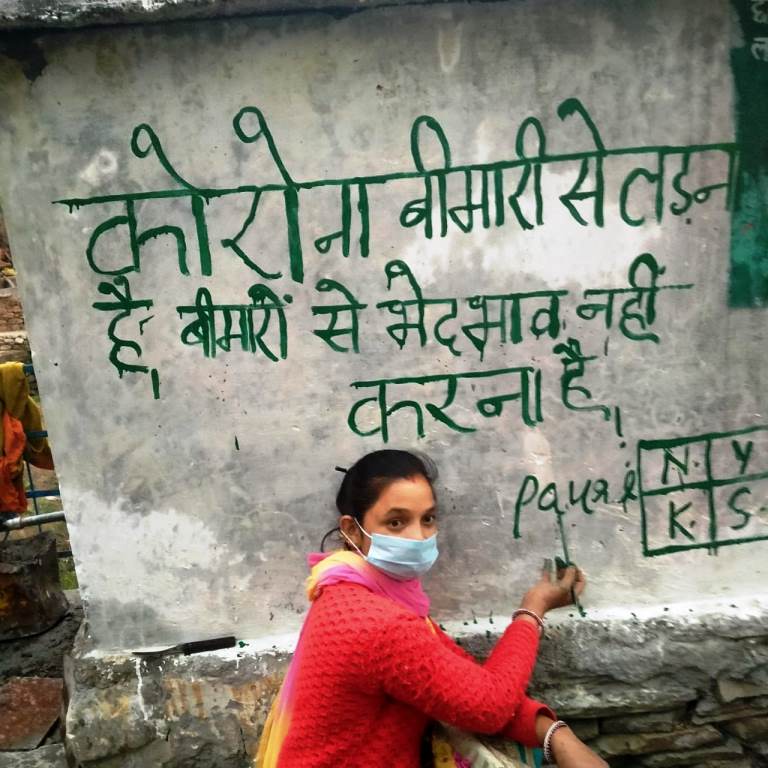 कोरोना बीमारी से लड़ना
है, बीमारों से भेदभाव नहीं
करना है,
Pauri
N. Y
K. S.